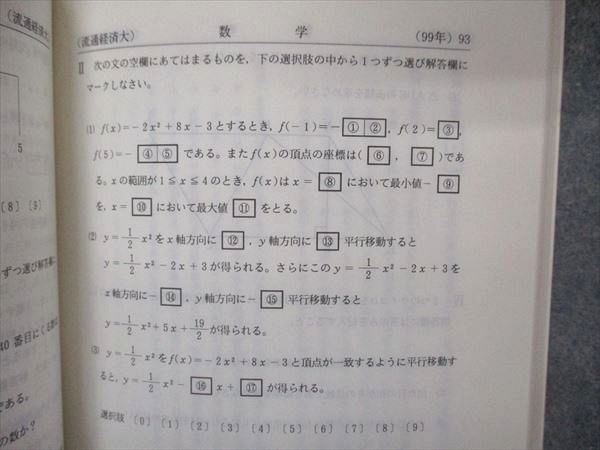 (流通経済大)
数 学
(99年) 93
Ⅱ 次の文の空欄にあてはまるものを,下の選択肢の中から1つずつ選び解答欄に
マークしなさい。
(1) f(x)=-2x²+8x-3とするとき,f(-1)=-①②,f(2)=③,
f(5)=-④⑤である。またf(x)の頂点の座標は(⑥,⑦)であ
る。xの範囲が1≦x≦4のとき,f(x)はx=⑧において最小値-⑨
を,x=⑩において最大値⑪をとる。
(2) y=1/2x²をx軸方向に⑫,y軸方向に⑬平行移動すると
y=1/2x²-2x+3が得られる。さらにこのy=1/2x²-2x+3を
x軸方向に-⑭,y軸方向に-⑮平行移動すると
y=1/2x²+5x+19/2が得られる。
(3) y=1/2x²をf(x)=-2x²+8x-3と頂点が一致するように平行移動す
ると,y=1/2x²-⑯x+⑰が得られる。
選択肢 [0] [1] [2] [3] [4] [5] [6] [7] [8] [9]
(流通経済
5
[8] [9]
ずつ選び
40番目にくる数に
である。
の数か?